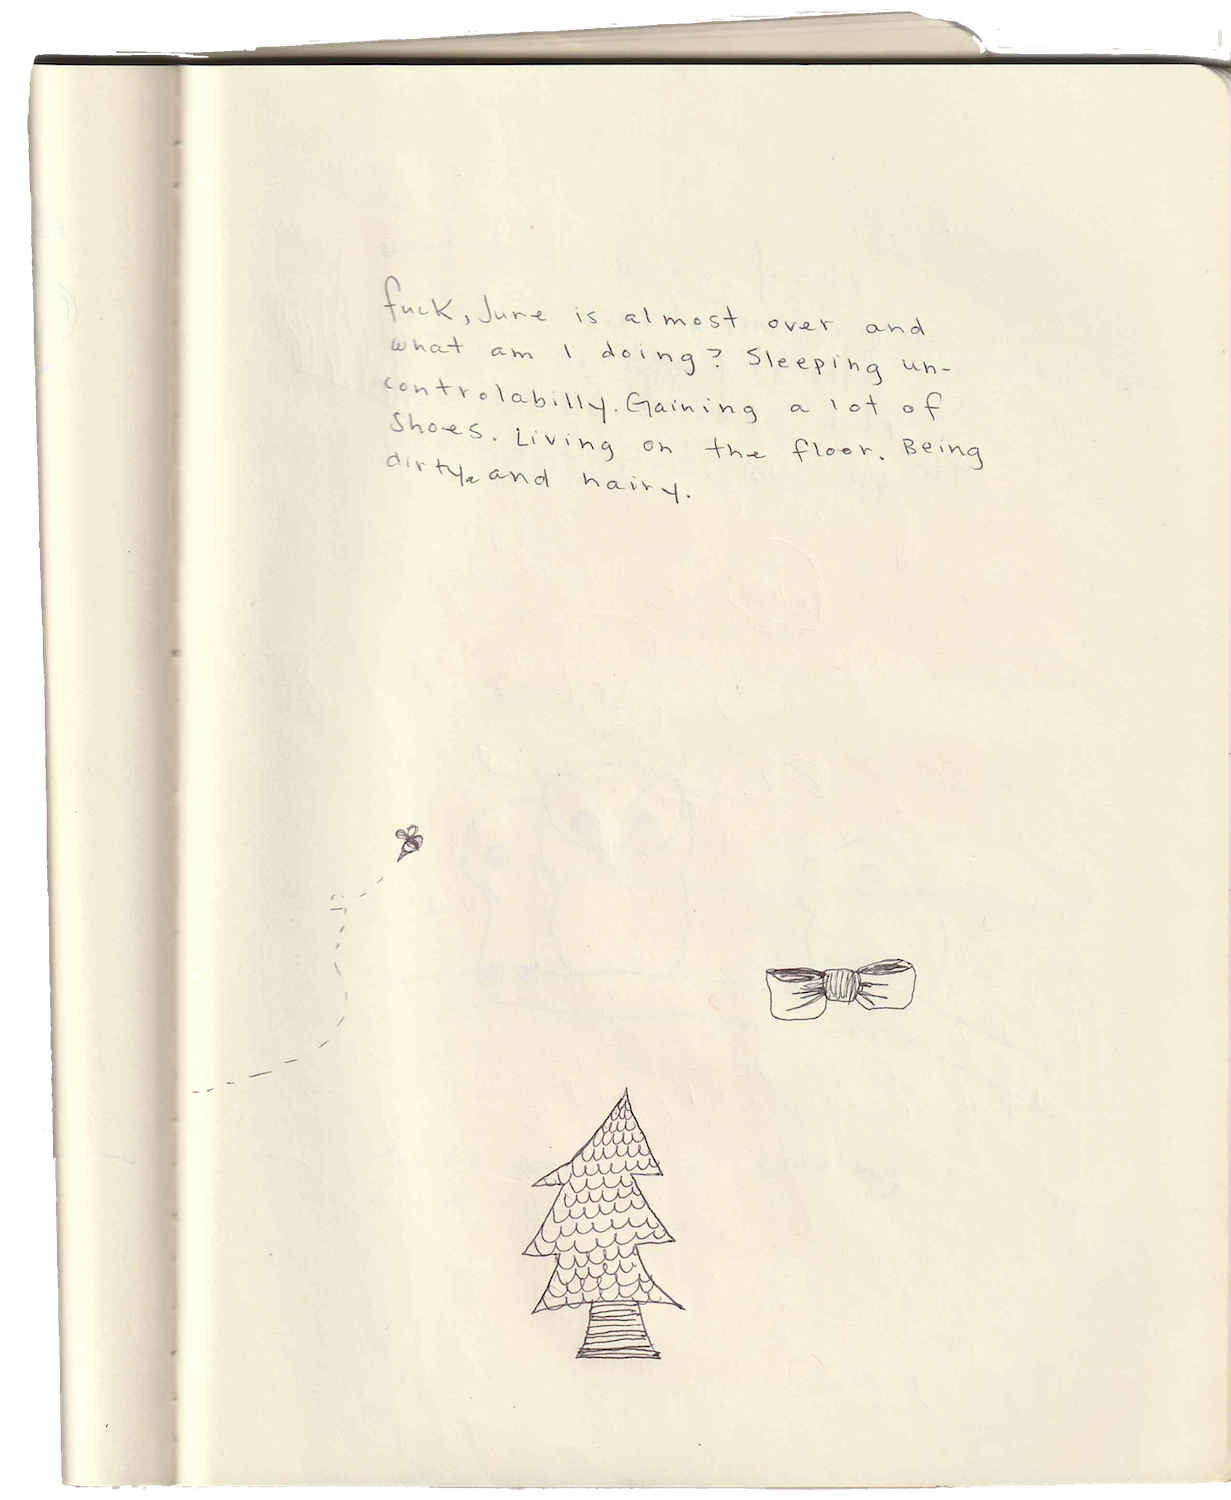 fuck, June is almost over and
what am I doing? Sleeping un-
controlabilly. Gaining a lot of
Shoes. Living on the floor. Being
dirty and hairy.